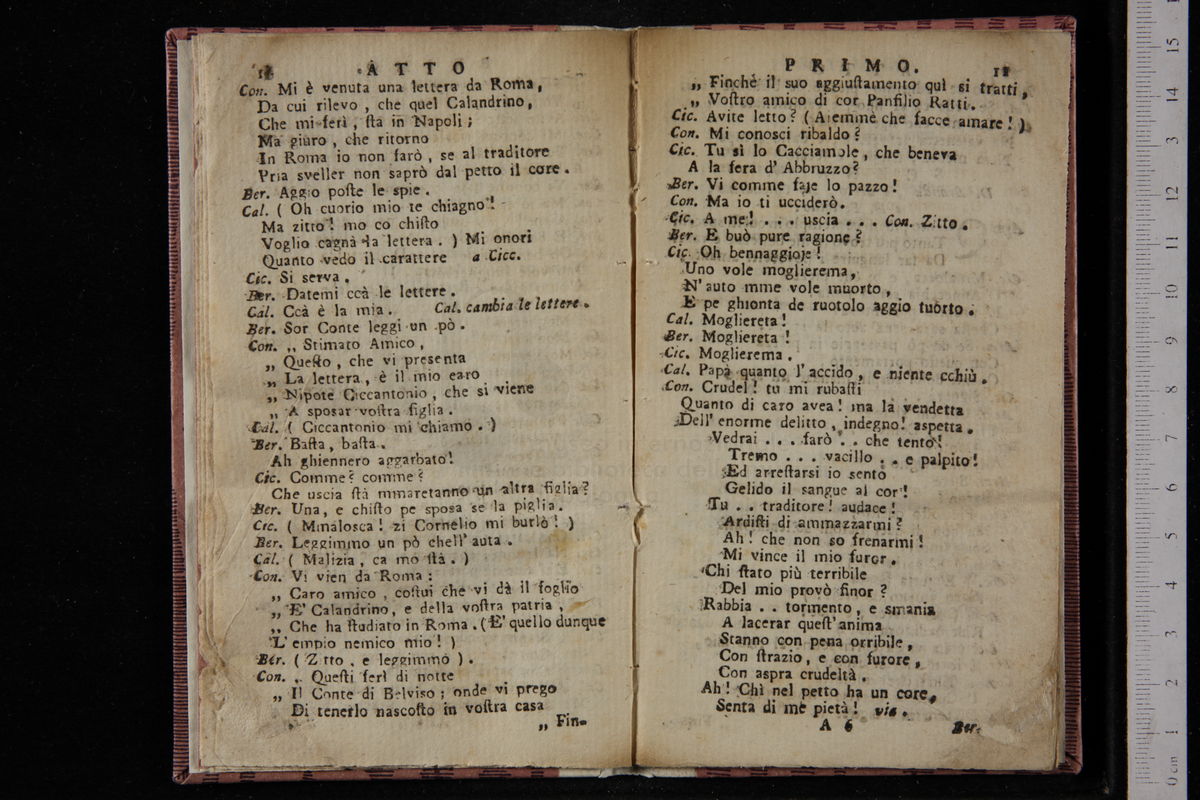 ATTO
Con. Mi è venuta una lettera da Roma,
Da cui rilevo, che quel Calandrino,
Che mi ferì, ſta in Napoli;
Ma giuro, che ritorno
In Roma io non farò, se al traditore
Pria sveller non saprò dal petto il core.
Ber. Aggio poſte le spie.
Cal. ( Oh cuorio mio te chiagno!
Ma zitto! mo co chiſto
Voglio cagnà la lettera. ) Mi onori
Quanto vedo il carattere a Cicc.
Cic. Si serva.
Ber. Datemi ccà le lettere.
Cal. Ccà è la mia. Cal. cambia le lettere.
Ber. Sor Conte leggi un pò.
Con. ,, Stimato Amico,
,, Queſto, che vi presenta
,, La lettera, è il mio caro
,, Nipote Ciccantonio, che si viene
,, A sposar voſtra figlia.
Cal. ( Ciccantonio mi chiamo. )
Ber. Baſta, baſta.
Ah ghiennero aggarbato!
Cic. Comme? comme?
Che uscia ſtà mmaretanno un altra figlia?
Ber. Una, e chiſto pe sposa se la piglia.
Cic. ( Mmalosca! zi Cornelio mi burlò! )
Ber. Leggimmo un pò chell' auta.
Cal. ( Malizia, ca mo ſtà. )
Con. Vi vien da Roma:
,, Caro amico, coſtui che vi dà il foglio
,, E' Calandrino, e della voſtra patria,
,, Che ha ſtudiato in Roma. (E' quello dunque
L' empio nemico mio! )
Ber. ( Z tto, e leggimmo ).
Con. ,, Queſti ferì di notte
,, Il Conte di Belviso; onde vi prego
Di tenerlo nascoſto in voſtra casa
,, Fin-
PRIMO. 11
,, Finchè il suo aggiuſtamento quì si tratti,
,, Voſtro amico di cor Panfilio Ratti.
Cic. Avite letto? ( Aiemmè che facce amare! )
Con. Mi conosci ribaldo?
Cic. Tu sì lo Cacciamole, che beneva
A la fera d' Abbruzzo?
Ber. Vi comme faje lo pazzo!
Con. Ma io ti ucciderò.
Cic. A me! . . . uscia . . . Con. Zitto.
Ber. E buò pure ragione?
Cic. Oh bennaggioje!
Uno vole moglierema,
N' auto mme vole muorto,
E pe ghionta de ruotolo aggio tuorto.
Cal. Mogliereta!
Ber. Mogliereta!
Cic. Moglierema.
Cal. Papà quanto l' accido, e niente cchiù.
Con. Crudel! tu mi rubaſti
Quanto di caro avea! ma la vendetta
Dell' enorme delitto, indegno! aspetta.
Vedrai . . . farò . . che tento!
Tremo . . . vacillo . . e palpito!
Ed arreſtarsi io sento
Gelido il sangue al cor!
Tu . . traditore! audace!
Ardiſti di ammazzarmi?
Ah! che non so frenarmi!
Mi vince il mio furor.
Chi ſtato più terribile
Del mio provò finor?
Rabbia . . tormento, e smania
A lacerar queſt' anima
Stanno con pena orribile,
Con ſtrazio, e con furore,
Con aspra crudeltà.
Ah! Chì nel petto ha un core,
Senta di me pietà! via.
A 6 Ber.